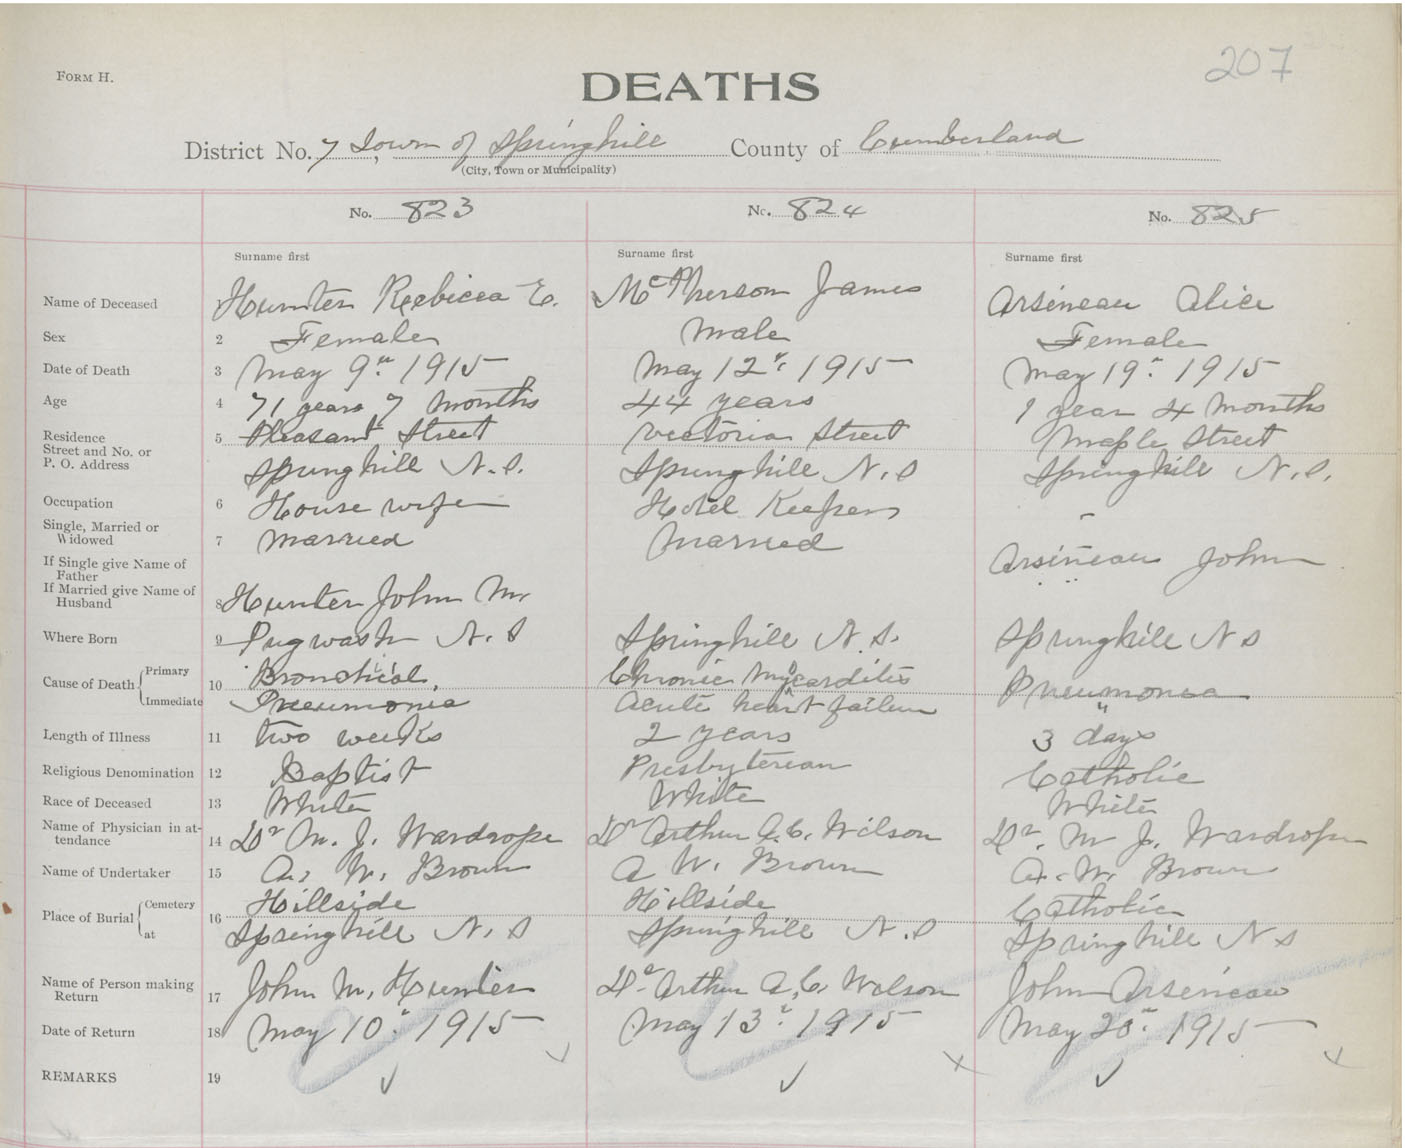 207
FORM H.
DEATHS
District No. 7, Town of Springhill County of Cumberland
(City, Town or Municipality)
No. 823 No. 824 No. 825
Surname first Surname first Surname first
Name of Deceased Hunter Rebicca E. McPherson James Arsineau Alice
Sex 2 Female Male Female
Date of Death 3 May 9th 1915 May 12th 1915 May 19th 1915
Age 4 71 years 7 months 44 years 1 year 4 months
Residence 5 Pleasant Street Victoria Street Maple Street
Street and No. or
P. O. Address Springhill N.S. Springhill N.S Springhill N.S.
Occupation 6 House wife Hotel Keeper -
Single, Married or
Widowed 7 Married Married
If Single give Name of
Father Arsineau John
If Married give Name of
Husband 8 Hunter John M.
Where Born 9 Pugwash N.S Springhill N.S. Springhill N S
Cause of Death Primary 10 Bronchial, Chronic Myocarditis Pneumonia
Immediate Pneumonia Acute heart failure "
Length of Illness 11 two weeks 2 years 3 days
Religious Denomination 12 Baptist Presbyterian Catholic
Race of Deceased 13 White White White
Name of Physician in at-
tendance 14 Dr M. J. Wardrope Dr Arthur A.C. Wilson Dr. M J. Wardrope
Name of Undertaker 15 A. W. Brown A W. Brown A. W. Brown
Place of Burial Cemetery 16 Hillside Hillside Catholic
at Springhill N.S Springhill N.S Springhill N S
Name of Person making
Return 17 John M. Hunter Dr Arthur A.C. Wilson John Arsineau
Date of Return 18 May 10th 1915 May 13th 1915 May 20th 1915
REMARKS 19 ✓ ✓ ✓